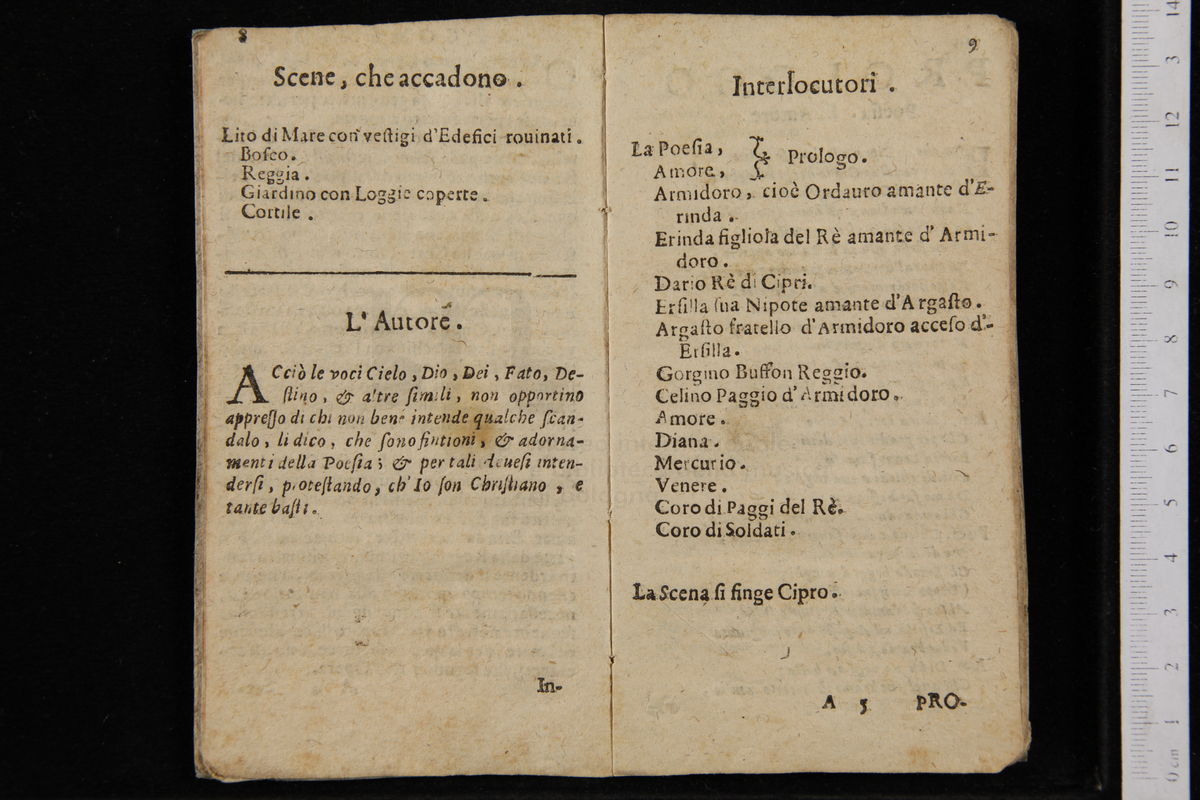 8
Scene, che accadono.
Lito di Mare con vestigi d'Edefici rouinati.
Bosco.
Reggia.
Giardino con Loggie coperte.
Cortile.
L'Autore.
ACciò le voci Cielo, Dio, Dei, Fato, De-
stino, & altre simili, non opportino
appresso di chi non bene intende qualche scan-
dalo, li dico, che sono fintioni, & adorna-
menti della Poesia; & per tali deuesi inten-
dersi, protestando, ch'Io son Christiano, e
tante basti.
In-
9
Interlocutori.
La Poesia,
Amore,
Prologo.
Armidoro, cioè Ordauro amante d'E-
rinda.
Erinda figliola del Rè amante d'Armi-
doro.
Dario Rè di Cipri.
Ersilla sua Nipote amante d'Argasto.
Argasto fratello d'Armidoro acceso d'-
Ersilla.
Gorgino Buffon Reggio.
Celino Paggio d'Armidoro.
Amore.
Diana.
Mercurio.
Venere.
Coro di Paggi del Rè.
Coro di Soldati.
La Scena si finge Cipro.
A 5 PRO-
0 cm 1 2 3 4 5 6 7 8 9 10 11 12 3 14